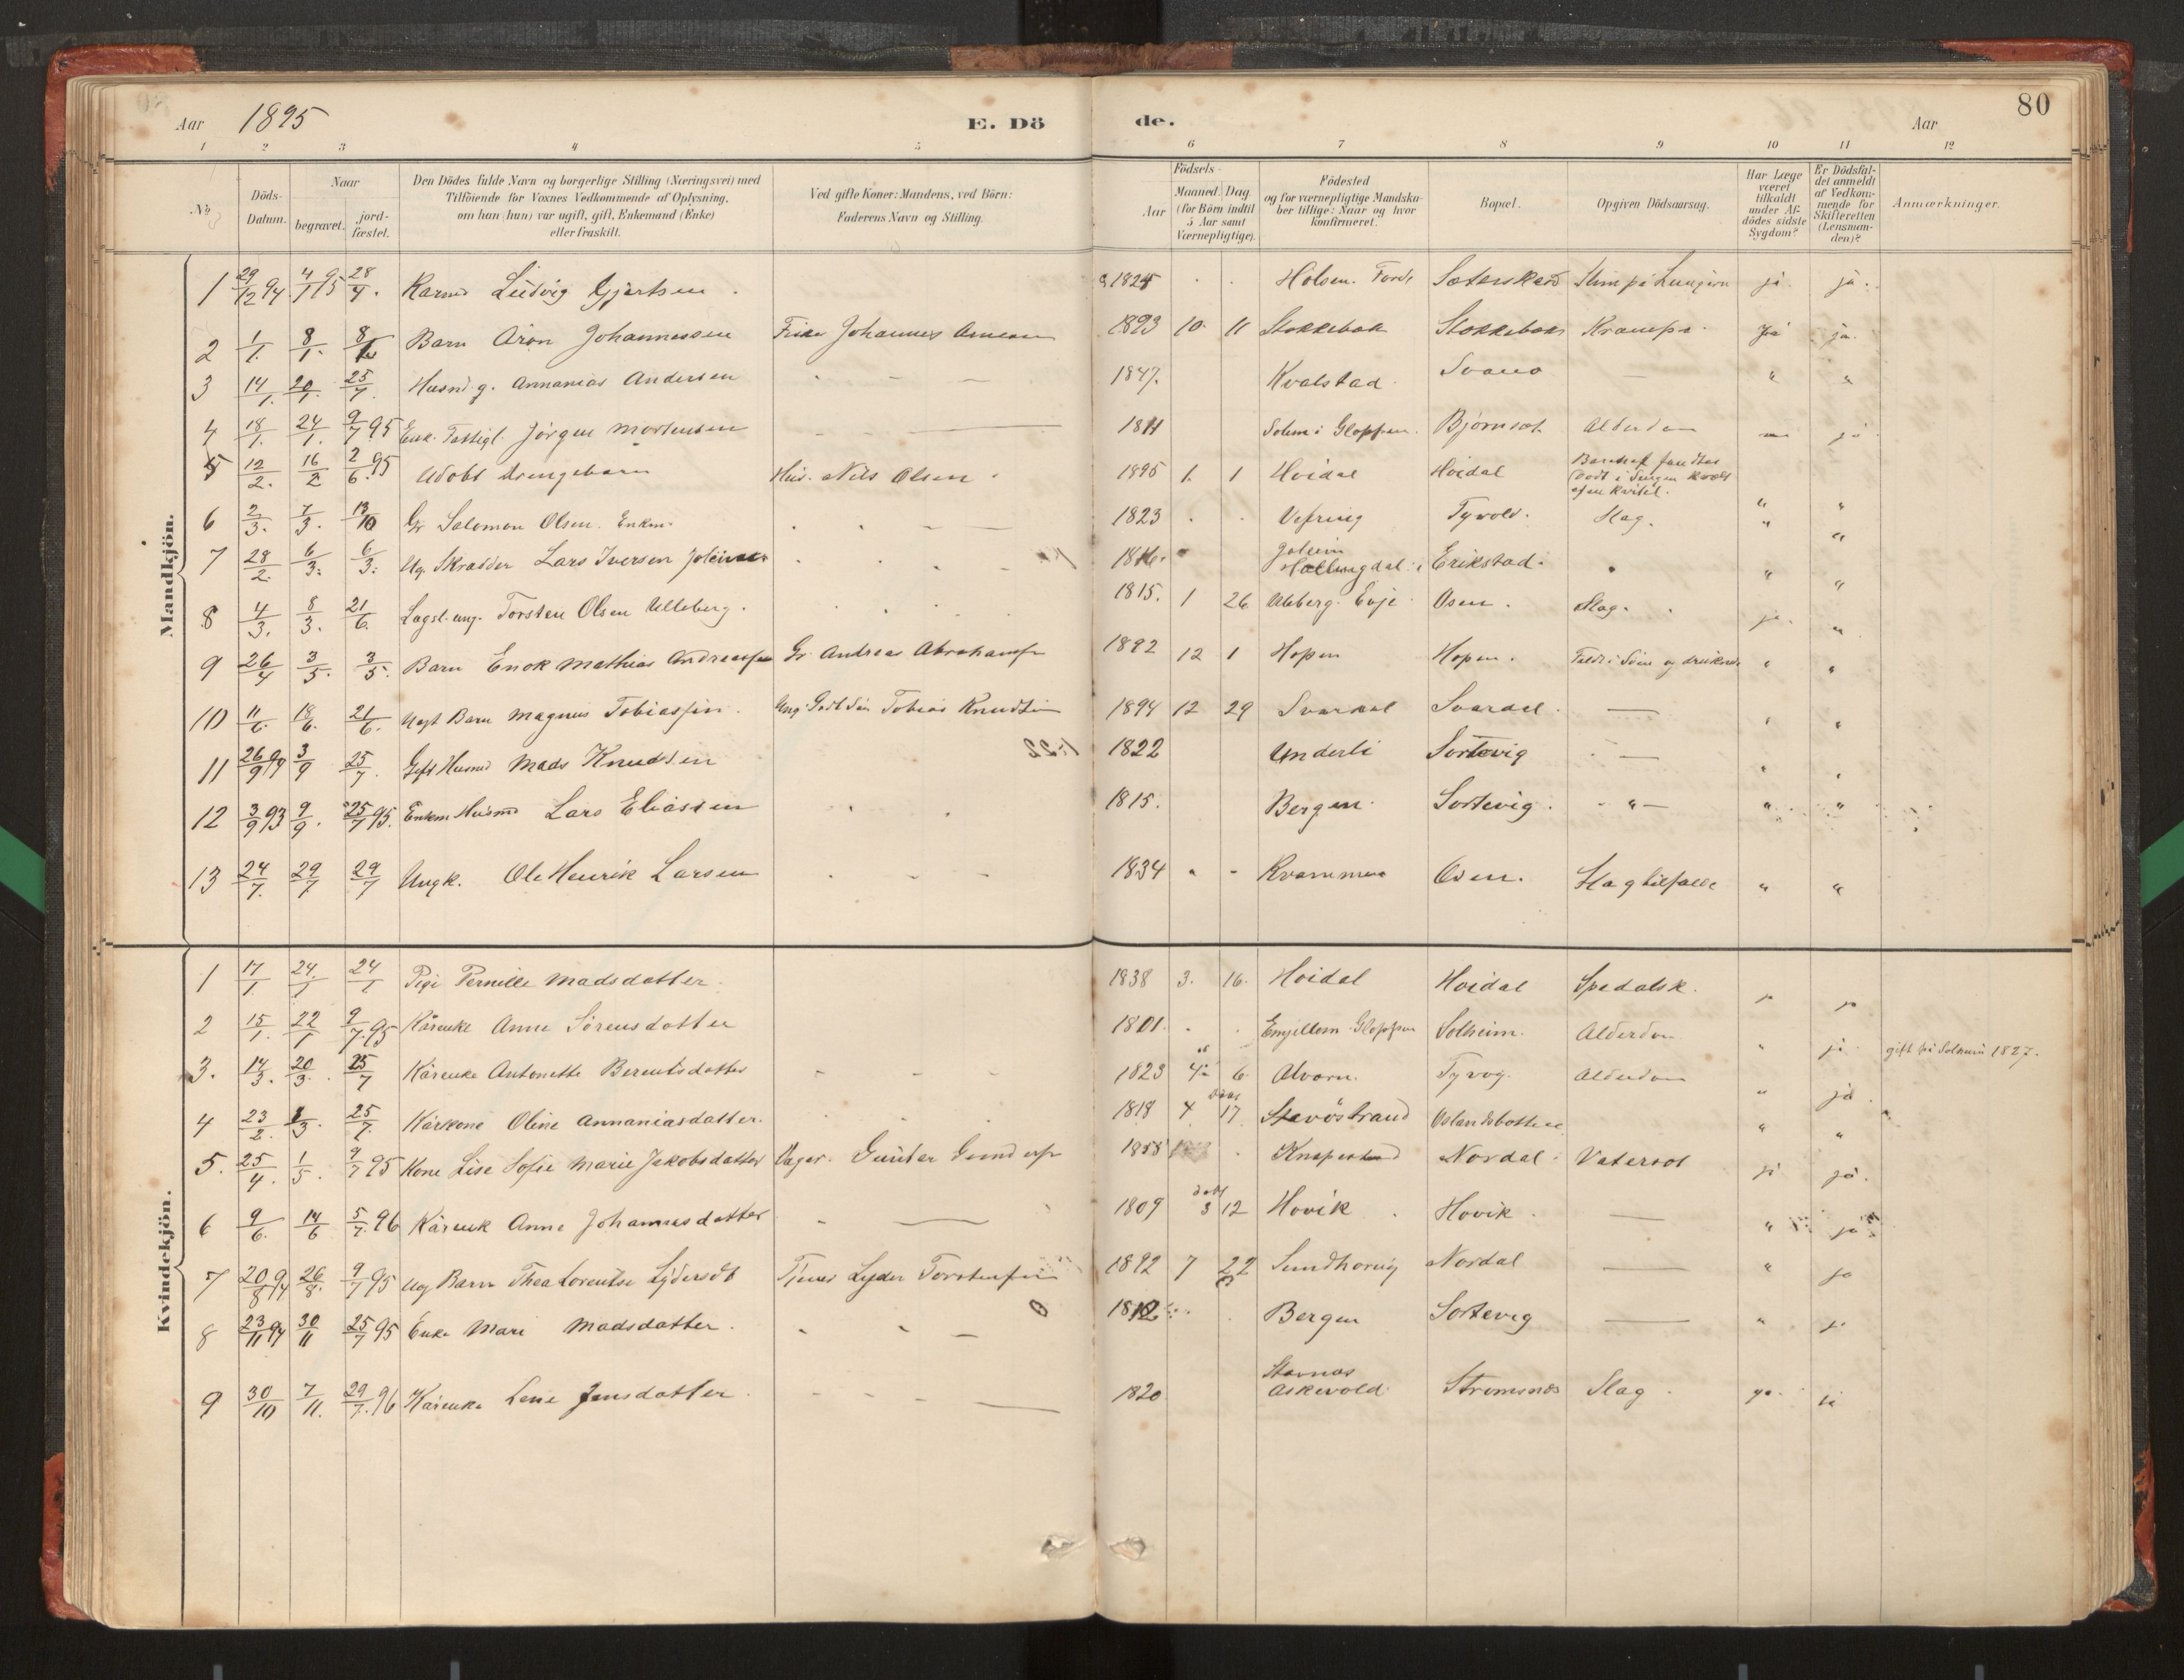 80
Aar 1895 E. Dö de. Aar
1 2 3 4 5 6 7 8 9 10 11 12
No
Döds-Datum.
Naar
begravet.
jord-fæstet.
Den Dödes fulde Navn og borgerlige Stilling (Næringsvei) med
Tilföiende for Voxnes Vedkommende af Oplysning,
om han (hun) var ugift, gift, Enkemand (Enke)
eller fraskilt.
Ved gifte Koner: Mandens, ved Börn:
Faderens Navn og Stilling.
Födsels-
Aar
Maaned. Dag.
(for Börn indtil
5 Aar samt
Værnepligtige).
Födested
og for værnepligtige Mandska-
ber tillige: Naar og hvor
konfirmeret.
Bopæl.
Opgiven Dödsaarsag.
Har Læge
været
tilkaldt
under Af-
dödes sidste
Sygdom?
Er Dödsfal-
det anmeldt
af Vedkom-
mende for
Skifteretten
(Lensman-
den)?
Anmærkninger.
Mandkjön.
1 29/12 94. 4/1 95 28/4. Ludvig Gjertsen. 1825 Holsen. Förde ja. ja.
2 1/1. 8/1. 8/1 Barn Aron Johannessen Johannes 1893 10 11 Stokkebak Stokkebak ja ja.
3 14/1. 20/1. 25/7. Husmd g. Annanias Andersen 1847. Kvalstad Svanø — " "
4 18/1. 24/1. 9/7 95 Enk. Fattigl. Jörgen Mortensen 1811 Solem i Gloppen. Björnset Alderdom ja
5 12/2. 16/2 2/6 95 Udöbt Drengebarn Hus. Nils Olsen. 1895 1. 1 Hoidal Hoidal
6 2/3. 7/3. 13/10 Gr Salomon Olsen. Enkm. 1823 Vefring Tyvold. Slag. " "
7 28/2. 6/3. 6/3. Ug. Skrædder Lars Iversen Hallingdal Erikstad. " "
8 4/3. 8/3. 21/6. Lægsl. ung. Torsten Olsen Ulleberg. 1815. 1 26 Evje Osen. Slag. ja. "
9 26/4 3/5. 3/5. Barn Enok Mathias Andreassen Gr. Andreas Abrahams 1892 12 1 Hopen Hopen. " "
10 11/6. 18/6. 21/6. Barn Magnus Tobiassen. Tobias Knudsen 1894 12 29 Svardal Svardal. — " "
11 26/9 94 3/9 25/7. Gift Husmd Mads Knudsen 1822 Underli Sortevig — " "
12 3/9 93 9/9. 25/7 95. Enkm Husmd Lars Eliassen 1815. Bergen Sortevig. — " — " "
13 24/7. 29/7 29/7 Ungk. Ole Henrik Larsen 1834 Kvammen Osen. Slagtilfælde " "
Kvindekjön.
1 17/1. 24/1 24/1 Pige Pernille Madsdatter. 1838 3. 16. Hoidal Hoidal Spedalsk. ja ja
2 15/1. 22/1 9/7 95 Kårenke Anne Sörensdatter 1801. Gloppen Solheim. Alderdom " ja gift på Solheim 1827.
3. 14/3. 20/3. 25/7 Kårenke Antonette Berentsdatter 1823 4 6 Alvorn. Tyvog. Alderdom " ja.
4 23/2. 1/3. 25/7. Kårkone Oline Annaniasdatter. 1818 4 17 Stavöstrand Oslandsbotten " "
5. 25/4. 1/5. 9/7 95 Kone Lise Sofie Marie Jakobsdatter Günter 1855 Knapestad Nordal Vatersot ja ja.
6 9/6. 14/6 5/7. 96 Kårenk Anne Johannesdatter — 1809 3 12 Hovik Hovik. — " ja
7 20/8 94 26/8. 9/7 95 Ug Barn Thea Lorentse Lydersdt Lyder Torstensen 1892 7 22 Nordal — " ja
8 23/11 94 30/11 25/7 95 Enke Mari Madsdatter. 1812 Bergen Sortevig — " ja
9 30/10 7/11. 29/7. 96 Kårenke Lene Jensdatter. — 1820 Stavnæs
Askevold. Strømsnes Slag. ja. ja